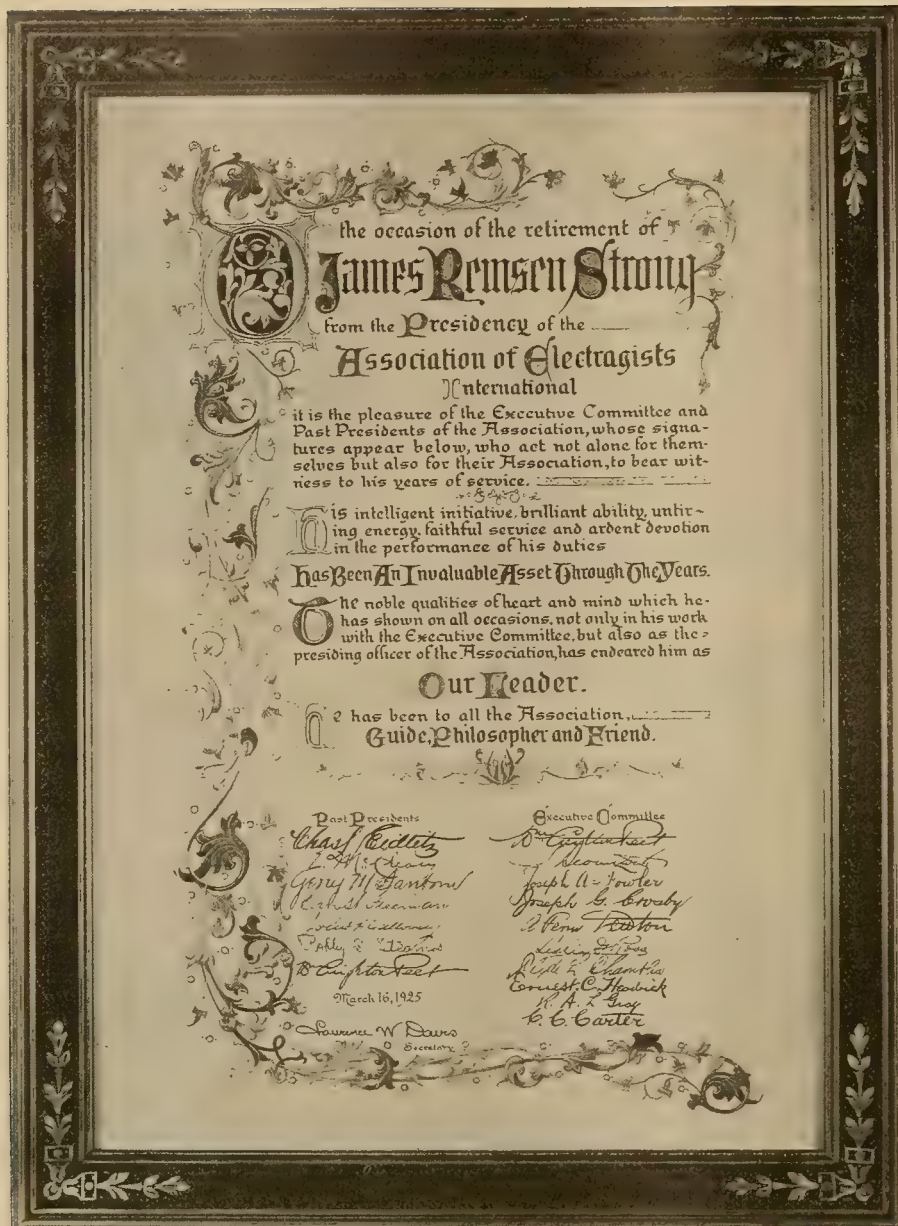 O the occasion of the retirement of
James Remsen Strong
from the Presidency of the
Association of Electragists
International
it is the pleasure of the Executive Committee and
Past Presidents of the Association, whose signa-
tures appear below, who act not alone for them-
selves but also for their Association, to bear wit-
ness to his years of service.
His intelligent initiative, brilliant ability, untir-
ing energy, faithful service and ardent devotion
in the performance of his duties
Has Been An Invaluable Asset Through The Years.
The noble qualities of heart and mind which he
has shown on all occasions, not only in his work
with the Executive Committee, but also as the
presiding officer of the Association, has endeared him as
Our Leader.
He has been to all the Association,
Guide, Philosopher and Friend.
Past Presidents
Chas L Eidlitz
Ernst Freeman
March 16, 1925
Lawrence W Davis
Secretary
Executive Committee
Joseph A Fowler
Joseph G. Crosby
A Penn Denton
Clyde L Chamblin
Ernest C. Headrick
K. A. L Gray
C. C. Carter